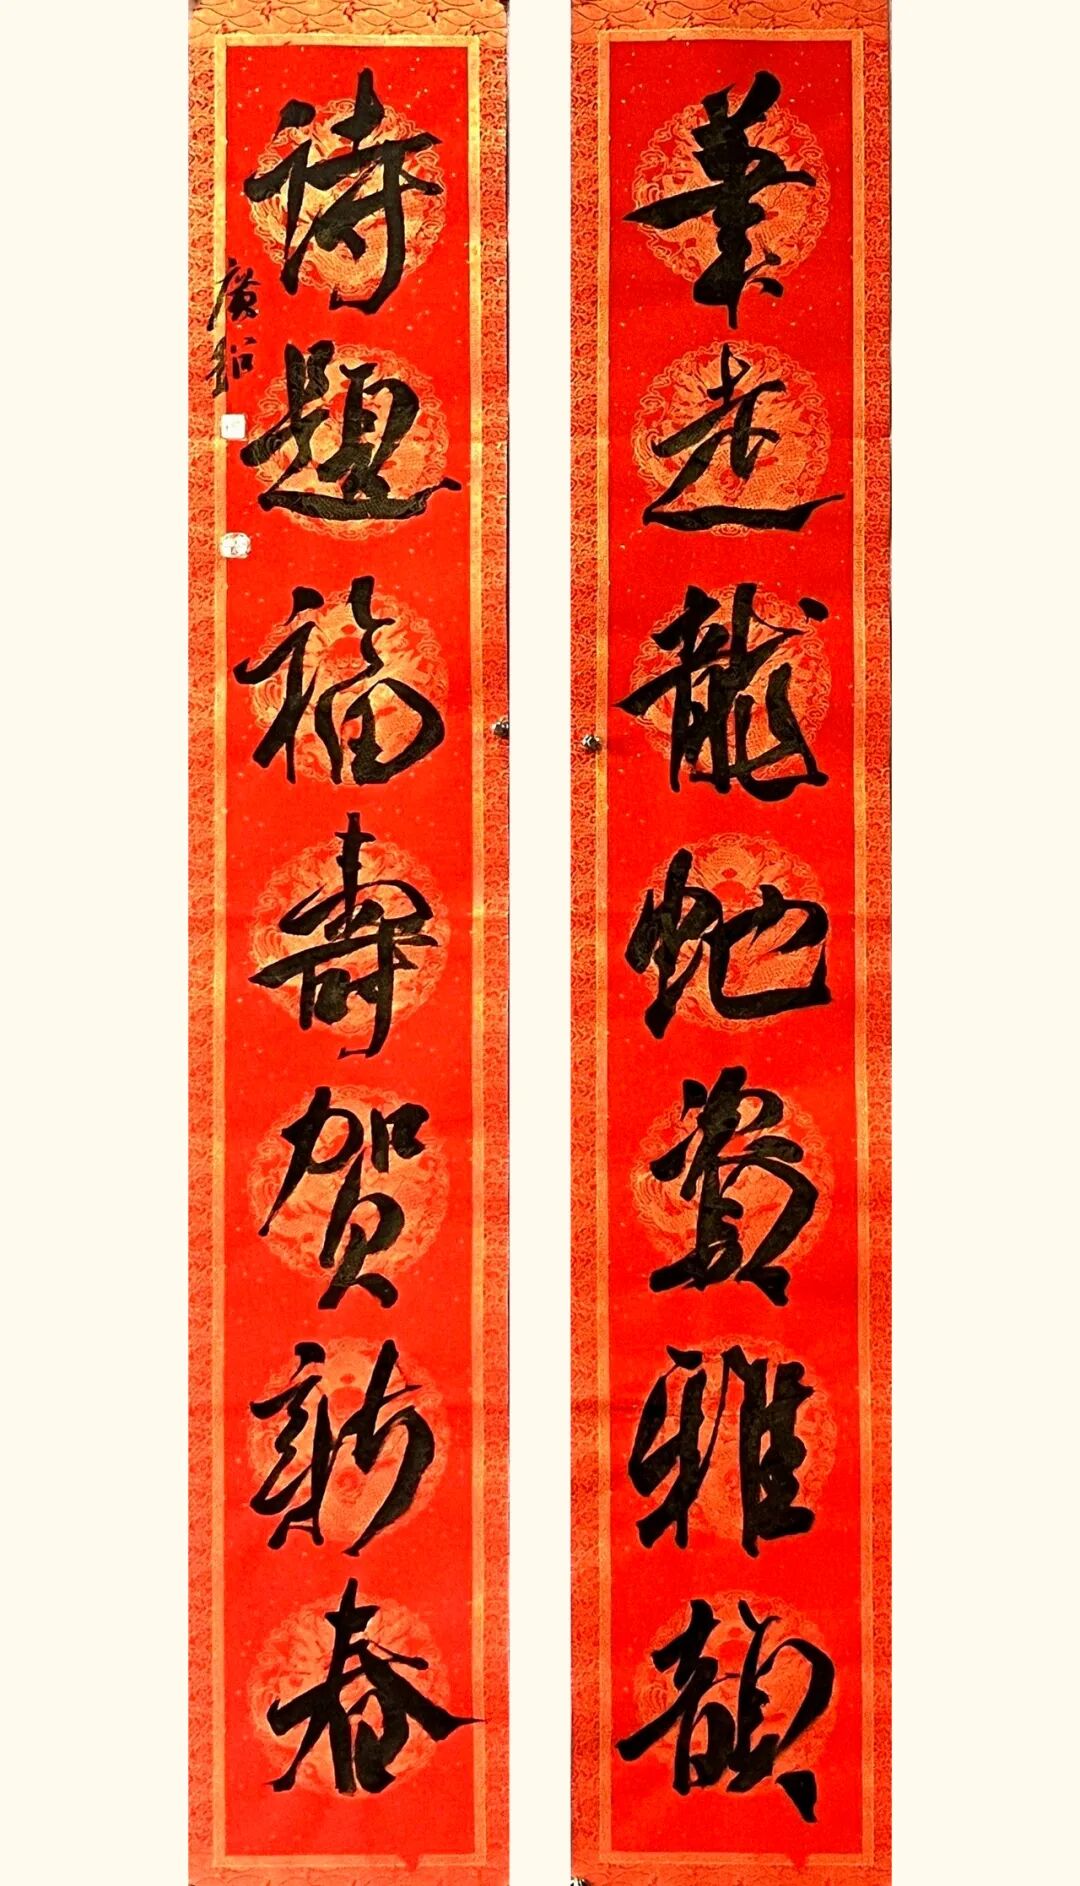 筆走龍蛇資雅韻
詩題福壽贺新春
廣